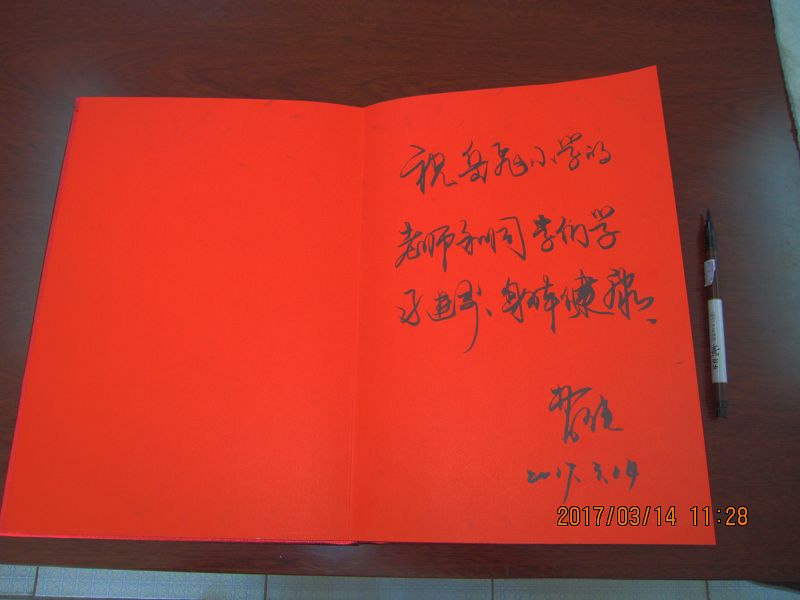 祝岳飞小学的
老师和同学们学
习进步、身体健康。
2017.3.14
2017/03/14 11:28